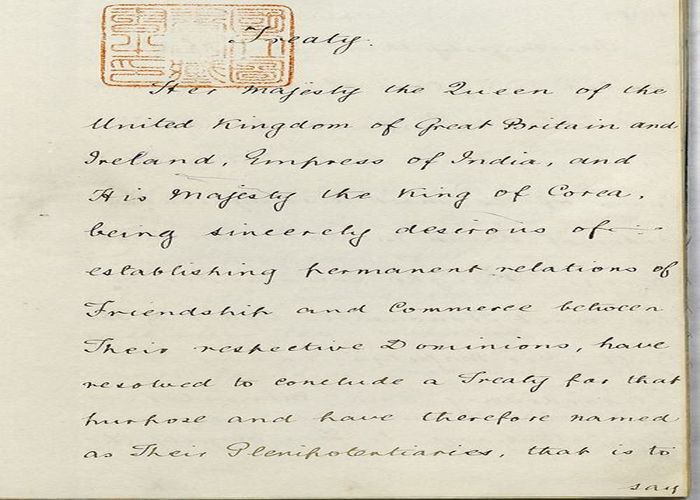 Treaty.
Her Majesty the Queen of the
United Kingdom of Great Britain and
Ireland, Empress of India, and
His Majesty the King of Corea,
being sincerely desirous of
establishing permanent relations of
Friendship and Commerce between
Their respective Dominions, have
resolved to conclude a Treaty for that
purpose and have therefore named
as Their Plenipotentiaries, that is to
say